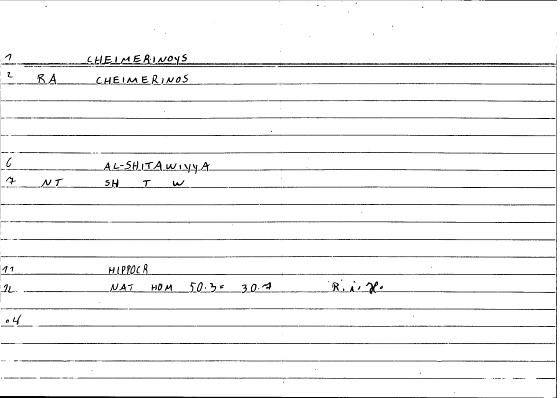 1 CHEIMERINOYS
2 RA CHEIMERINOS
6 AL-SHITAWIYYA
7 NT SH T W
11 HIPPOCR
12 NAT HOM 50.3 = 30.7 R. i. H.
.4